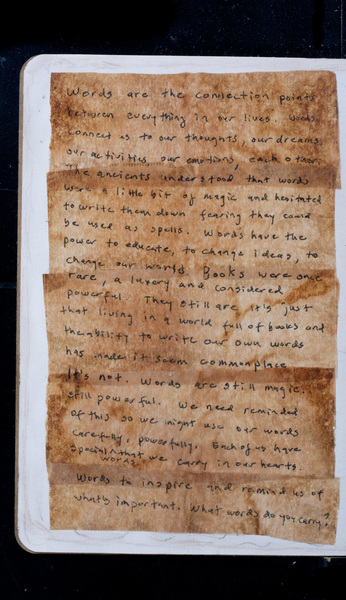 Words are the connection points
between everything in our lives. Words
connect us to our thoughts, our dreams,
our activities, our emotions, each other.
The ancients understood that words
were a little bit of magic and hesitated
to write them down fearing they could
be used as spells. Words have the
power to educate, to change ideas, to
change our world. Books were once
rare, a luxury and considered
powerful. They still are it's just
that living in a world full of books and
the ability to write our own words
has made it seem commonplace
It's not. Words are still magic..
still powerful. We need reminded
of this so we might use our words
carefully, powerfully. Each of us have
special words that we carry in our hearts.
Words to inspire and remind us of
what's important. What words do you carry?